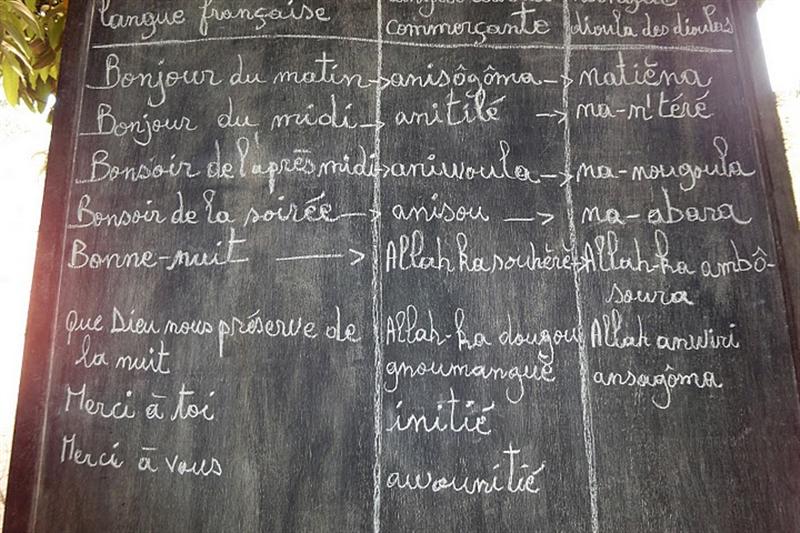 langue française commerçante dioula des dioulas
Bonjour du matin → anisôgôma → natièna
Bonjour du midi → anitilé → na-n'téré
Bonsoir de l'après midi → aniwoula → na-nougoula
Bonsoir de la soirée → anisou → na-abara
Bonne-nuit → Allah ka souhèrè → Allah-ka ambô-
soura
Que Dieu nous préserve de Allah-ka dougou Allah anwiri
la nuit gnoumanguè ansagôma
Merci à toi initié
Merci à vous awounitié